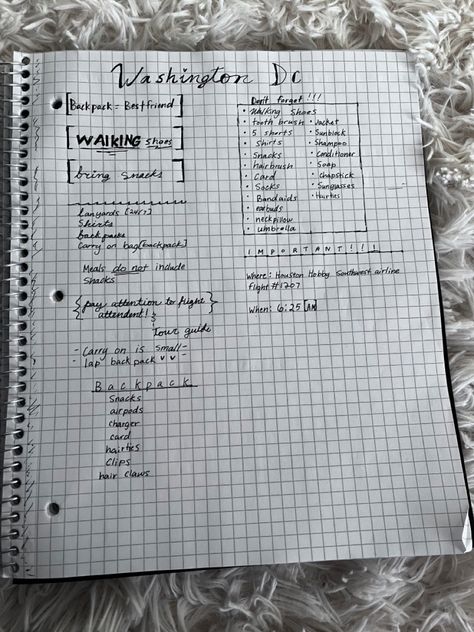 Washington Dc
[Backpack = Bestfriend]
[WALKING shoes]
[bring snacks]
lanyards [24/7]
Shirts
back packs
Carry on bag[backpack]
Meals do not include
Snacks
{pay attention to flight
attendent! &
Tour guide}
- Carry on is small -
- lap back pack v v
Backpack
Snacks
airpods
charger
card
hairties
Clips
hair claws
Don't forget!!!
• Walking shoes
• tooth brush
• 5 shorts
• Shirts
• Snacks
• hairbrush
• Card
• Socks
• Bandaids
• earbuds
• neck pillow
• umbrella
• Jacket
• Sunblock
• Shampoo
• Conditioner
• Soap
• Chapstick
• Sunglasses
• Hairties
IMPORTANT!!!
Where: Houston Hobby Southwest airline
flight #1207
When: 6:25 [AM]